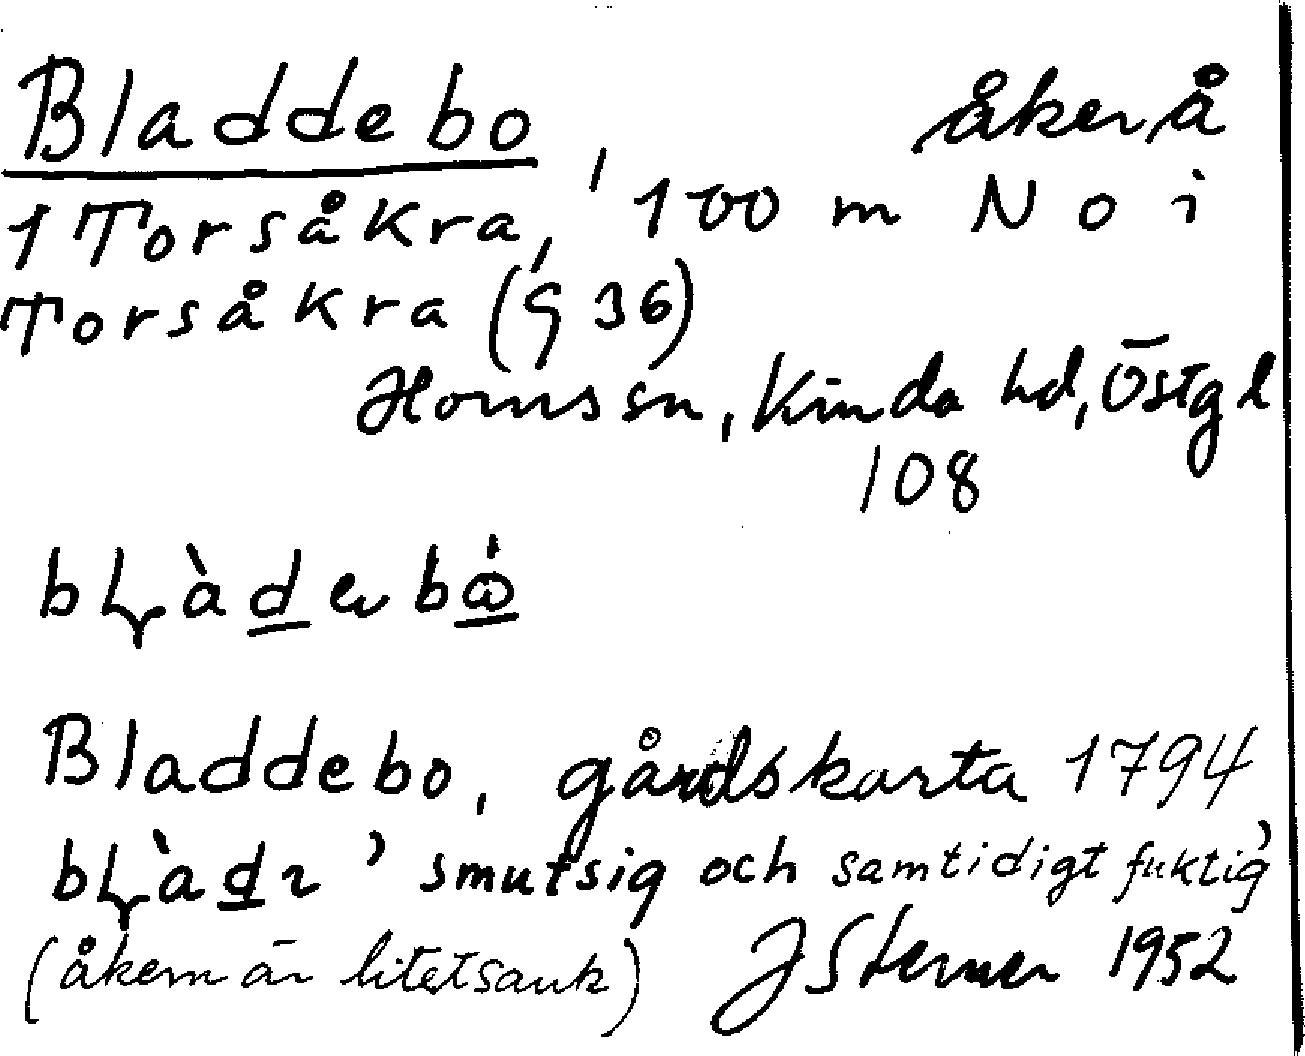 Bladdebo, åker å
1 Torsåkra, 100 m No i
Torsåkra (§ 36)
Horns sn, Kinda hd, Östgl
108
Bladdebo, gårdskarta 1794
' smutsig och samtidigt fuktig'
(åkern är litet sank) J Sterner 1952